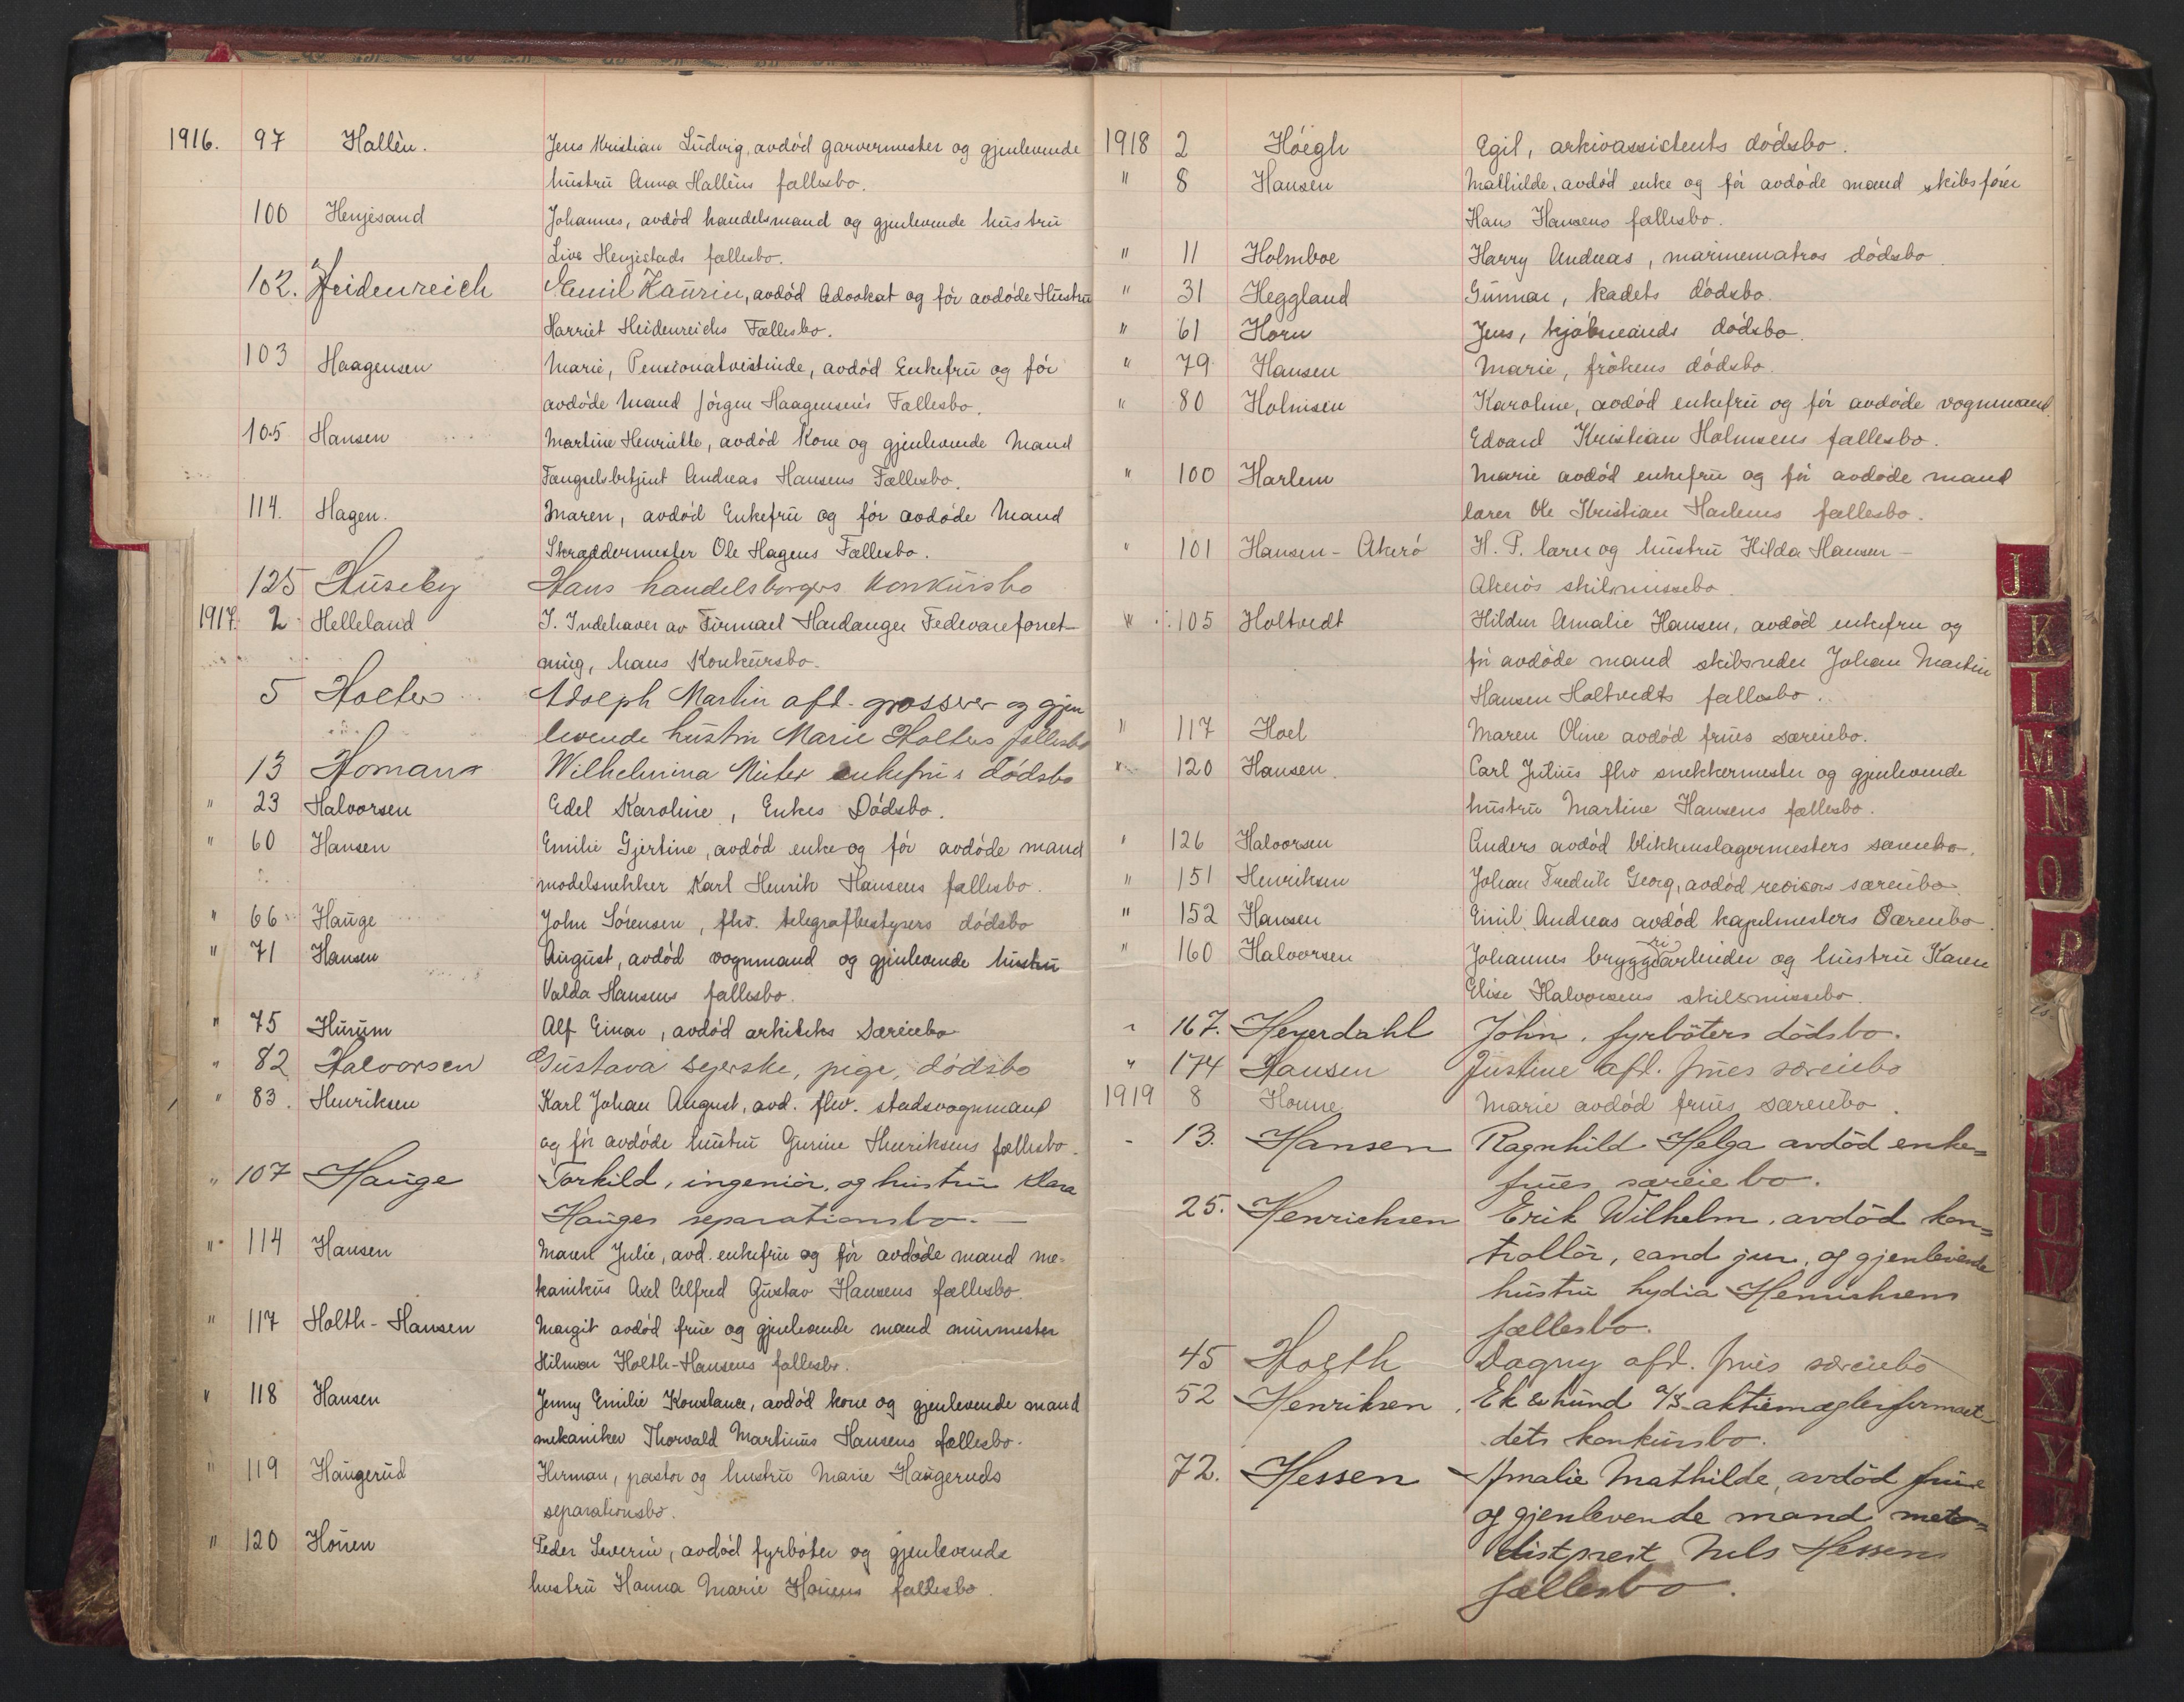 1916. 97 Hallèn. Jens Kristian Ludvig, avdød garvermester og gjenlevende
hustru Anna Hallèns fællesbo.
100 Henjesand Johannes, avdød handelsmand og gjenlevende hustru
Live Henjestads fællesbo.
102. Heidenreich Emil Kaurin, avdød Advokat og før avdøde Hustru
Harriet Heidenreichs Fællesbo.
103 Haagensen Marie, Pensionatvertinde, avdød Enkefru og før
avdøde Mand Jørgen Haagensen's Fællesbo.
105 Hansen Martine Henriette, avdød Kone og gjenlevende Mand
Fængselsbetjent Andreas Hansens Fællesbo.
114. Hagen. Maren, avdød Enkefru og før avdøde Mand
Skræddermester Ole Hagens Fællesbo.
125 Huseby Hans handelsborgers konkursbo
1917. 2 Helleland I. Indehaver av Firmaet Hardanger Fedevareforret-
ning, hans Konkursbo.
5 Holter Adolph Martin afd. grosserer og gjen
levende hustru Marie Holters fællesbo
13 Homann Wilhelmina enkefrus dødsbo
" 23 Halvorsen Edel Karoline, Enkes Dødsbo.
" 60 Hansen Emilie Gjertine, avdød enke og før avdøde mand
modelsnekker Karl Henrik Hansens fællesbo.
" 66 Hauge John Sørensen, fhv. telegrafbestyrers dødsbo
" 71 Hansen August, avdød vognmand og gjenlevende hustru
Valda Hansens fællesbo.
" 75 Hurum Alf Einar, avdød arkitekts Særeiebo
" 82 Halvorsen Gustava syerske, pige, dødsbo
" 83. Henriksen Karl Johan August, avd. fhv. stadsvognmand
og før avdøde hustru Gurine Henriksens fællesbo.
" 107 Hauge Torkild, ingeniør, og hustru Klara
Hauges separationsbo. —
" 114 Hansen Maren Julie, avd. enkefru og før avdøde mand me-
kanikus Axel Alfred Gustav Hansens fællesbo.
" 117 Holth-Hansen Margit avdød frue og gjenlevende mand murmester
Hilmar Holth-Hansens fællesbo.
" 118 Hansen Jenny Emilie Konstance, avdød kone og gjenlevende mand
mekaniker Thorvald Martinus Hansens fællesbo.
" 119 Haugerud Herman, pastor og hustru Marie Haugeruds
separationsbo.
" 120 Houen Peder Severin, avdød fyrbøter og gjenlevende
hustru Hanna Marie Houens fællesbo.
1918 2 Høegh Egil, arkivassistents dødsbo.
" 8 Hansen Mathilde, avdød enke og før avdøde mand skibsfører
Hans Hansens fællesbo.
" 11 Holmboe Harry Andreas, marinematros dødsbo
" 31 Heggland Gunnar, kadets dødsbo.
" 61 Horn Jens, kjøbmands dødsbo.
" 79 Hansen Marie, frøkens dødsbo.
" 80 Holmsen Karoline, avdød enkefru og før avdøde vognmand
Edvard Kristian Holmsens fællesbo.
" 100 Harlem Marie avdød enkefru og før avdøde mand
lærer Ole Kristian Harlems fællesbo.
" 101 Hansen - Akerø H. P. lærer og hustru Hilda Hansen -
Akerøs skilsmissebo.
" 105 Holtvedt Hildur Amalie Hansen, avdød enkefru og
før avdøde mand skibsreder Johan Martin
Hansen Holtvedts fællesbo.
" 117 Hoel Maren Oline avdød frues særeiebo.
" 120 Hansen. Carl Julius fhv snekkermester og gjenlevende
hustru Martine Hansens fællesbo.
" 126 Halvorsen Anders avdød blikkenslagermesters særeiebo.
" 151 Henriksen Johan Fredrik Georg, avdød revisors særeiebo.
" 152 Hansen Emil Andreas avdød kapelmesters Særeiebo.
" 160 Halvorsen Johannes bryggeriarbeider og hustru Karen
Elise Halvorsens skilsmissebo.
" 167. Heyerdahl John, fyrbøters dødsbo.
" 174 Hansen Justine afd. frues særeiebo
1919 8 Honne Marie avdød frues særeiebo.
- 13. Hansen Ragnhild Helga avdød enke=
frues særeiebo.
25. Henrichsen Erik Wilhelm, avdød kon=
trollør, cand jur, og gjenlevende
hustru Lydia Henrichsens
fællesbo.
45 Holth Dagny afd. frues særeiebo
52 Henriksen, Ek & Lund A/S aktiemæglerfirmaet
dets konkursbo.
72. Hessen Amalie Mathilde, avdød frue
og gjenlevende mand meto=
distprest Nels Hessens
fællesbo.
J
K
L
M
N
O
P
S
T
U
V
X
Y